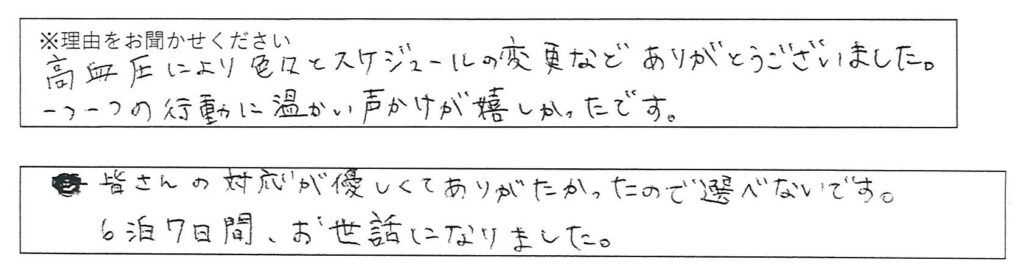 ※理由をお聞かせください
高血圧により色々とスケジュールの変更などありがとうございました。
一つ一つの行動に温かい声かけが嬉しかったです。
皆さんの対応が優しくてありがたかったので選べないです。
6泊7日間、お世話になりました。